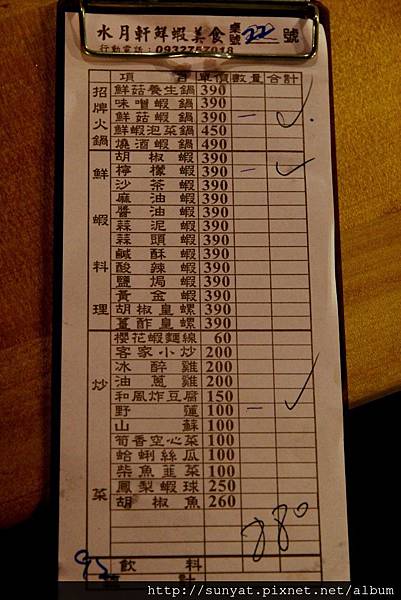 水月軒鮮蝦美食 桌號 22 號
行動電話：0932757018
項 目 單價 數量 合計
招牌火鍋
鮮菇養生鍋 390
味噌蝦鍋 390
鮮菇蝦鍋 390 一 ✓
鮮蝦泡菜鍋 450
燒酒蝦鍋 490
鮮蝦料理
胡椒蝦 390
檸檬蝦 390 一 ✓
沙茶蝦 390
麻油蝦 390
醬油蝦 390
蒜泥蝦 390
蒜頭蝦 390
鹹酥蝦 390
酸辣蝦 390
鹽焗蝦 390
黃金蝦 390
胡椒皇螺 390
薑酢皇螺 390
炒菜
櫻花蝦麵線 60
客家小炒 200
冰醉雞 200
油蔥雞 200
和風炸豆腐 150
野蓮 100 一 ✓
山蘇 100
筍香空心菜 100
蛤蜊絲瓜 100
柴魚韭菜 100
鳳梨蝦球 250
胡椒魚 260
880
95
飲 料
總 計
http://sunyat.pixnet.net/album